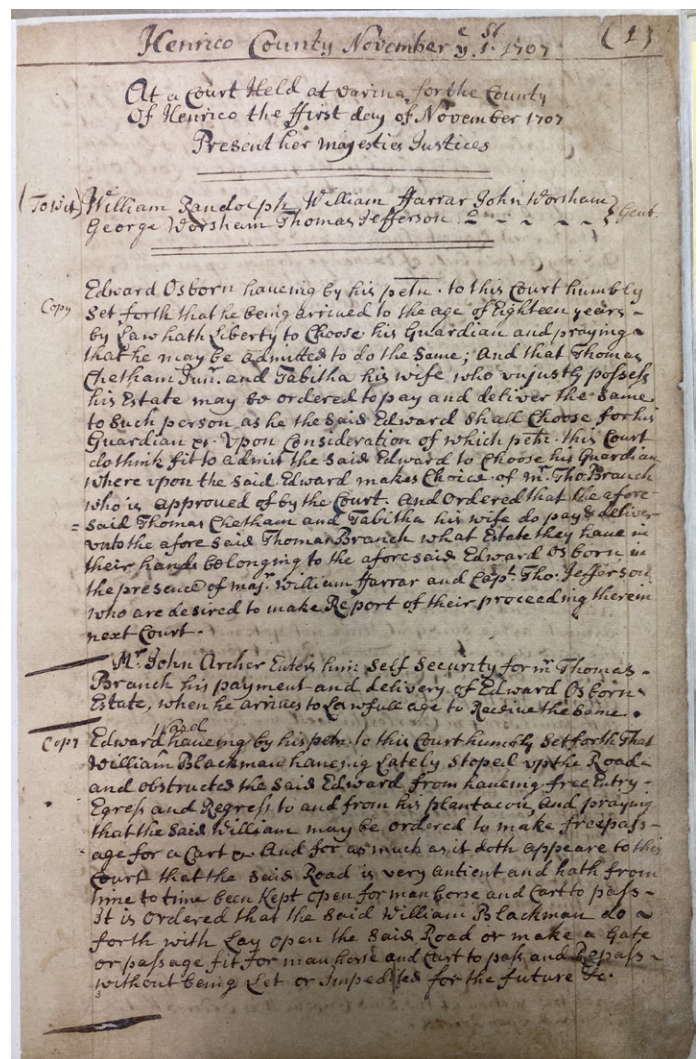 Henrico County November yᵉ 1ˢᵗ 1707 (1)
At a Court Held at varina for the County
Of Henrico the ffirst day of November 1707
Present her majesties Justices
(To wit) William Randolph William ffarrar John Worsham
George Worsham Thomas Jefferson Gent.
Edward Osborn haueing by his petn. to this Court humbly
Copy Set forth that he being arriued to the age of Eighteen years
by Law hath Liberty to Choose his Guardian and praying
that he may be admitted to do the Same; And that Thomas
Chetham Junr. and Tabitha his wife who vnjustly possess
his Estate may be ordered to pay and deliver the Same
to Such person as he the Said Edward Shall Choose for his
Guardian &. Vpon Consideration of which petn. this Court
do think fit to admit the Said Edward to Choose his Guardian
where vpon the Said Edward makes Choice of mr. Tho. Branch
who is approved of by the Court. And Ordered that the afore
= Said Thomas Chetham and Tabitha his wife do pay & deliver
vnto the afore Said Thomas Branch what Estate they have in
their hands belonging to the aforesaid Edward Osborn in
the presence of majr. William ffarrar and Capt. Tho. Jefferson
who are desired to make Report of their proceeding therein
next Court.
Mr. John Archer Enters him Self Security for mr. Thomas
Branch his payment and delivery of Edward Osborns
Estate, when he arriues to Lawfull age to Receive the Same.
Copy Edward haueing by his petn. to this Court humbly Set forth That
William Blackman haueing Lately Stoped vp the Road
and obstructed the Said Edward from haueing free Entry
Egress and Regress to and from his plantacon, And praying
that the Said William may be ordered to make free pass-
age for a Cart & And for as much as it doth appeare to this
Court that the Said Road is very antient and hath from
time to time been Kept open for man horse and Cart to pass
It is Ordered that the Said William Blackman do
forth with Lay open the Said Road or make a Gate
or passage fit for man horse and Cart to pass and Repass
without being Let or Impedited for the future &c.